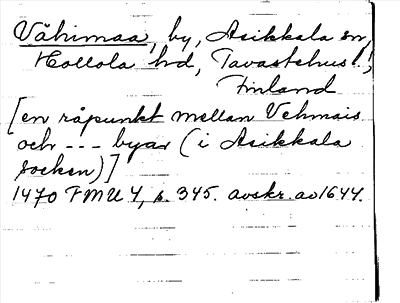 Vähimaa, by, Asikkala sn,
Hollola hd, Tavastehus l.,
Finland
[en råpunkt mellan Vehmais
och --- byar (i Asikkala
socken)]
1470 FMU 4, s. 345. avskr. av 1644.